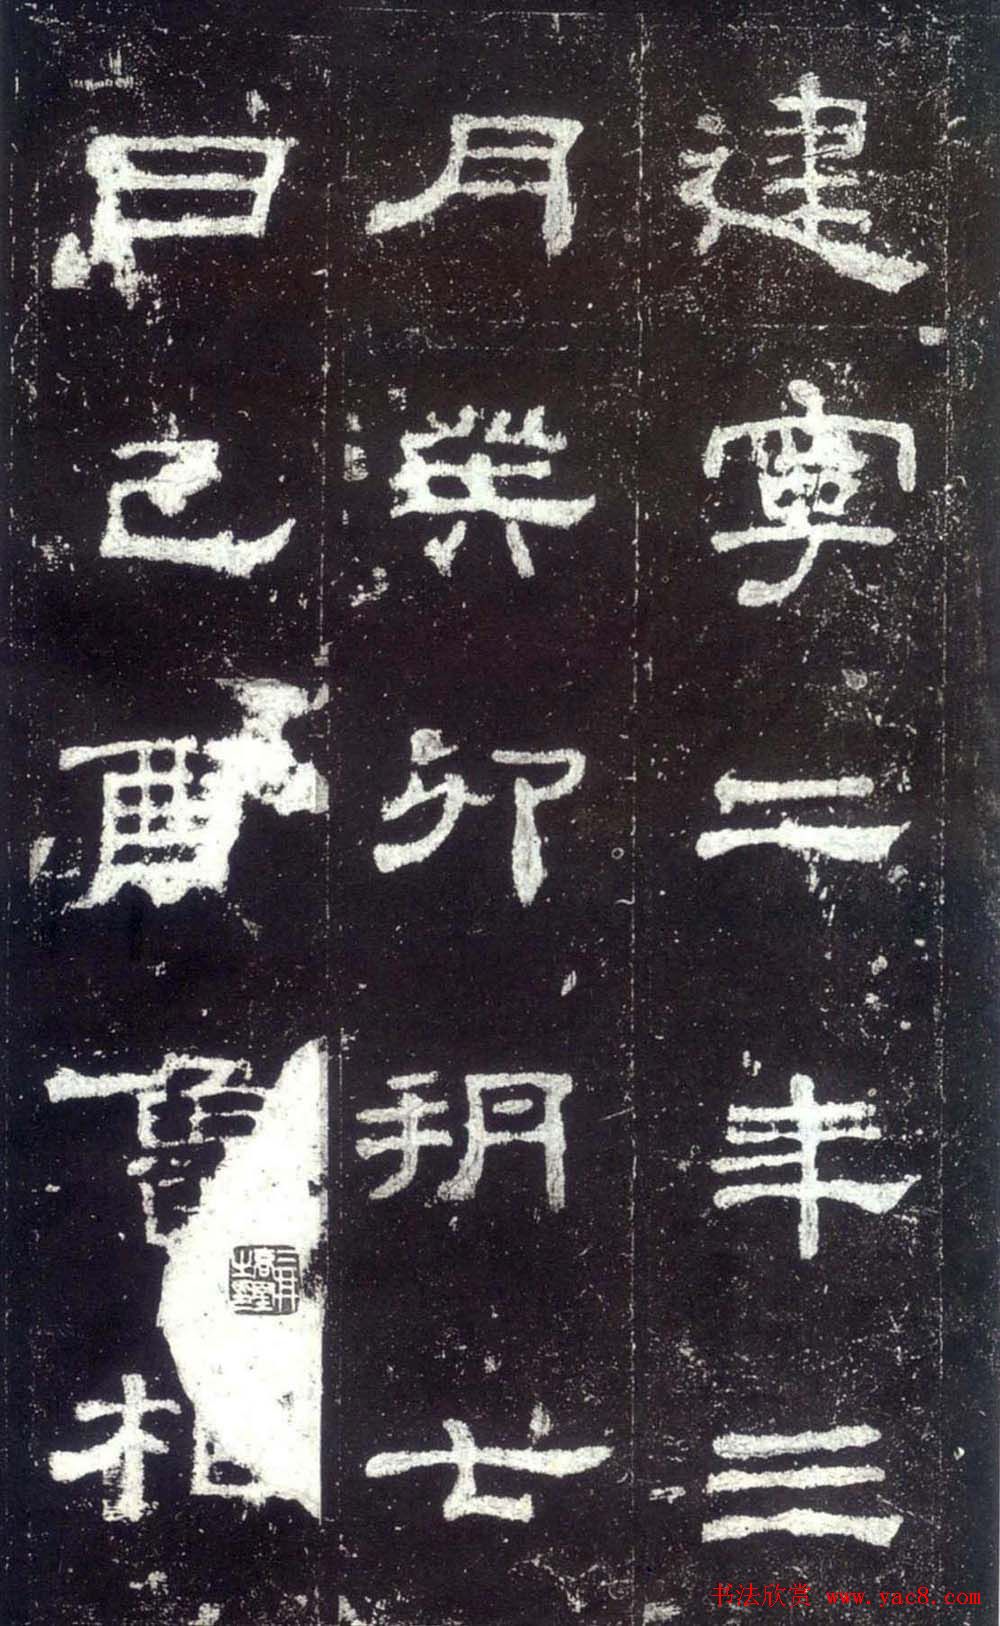 建寧二年三
月癸卯朔七
日己酉魯相
書法欣赏 www.yac8.com